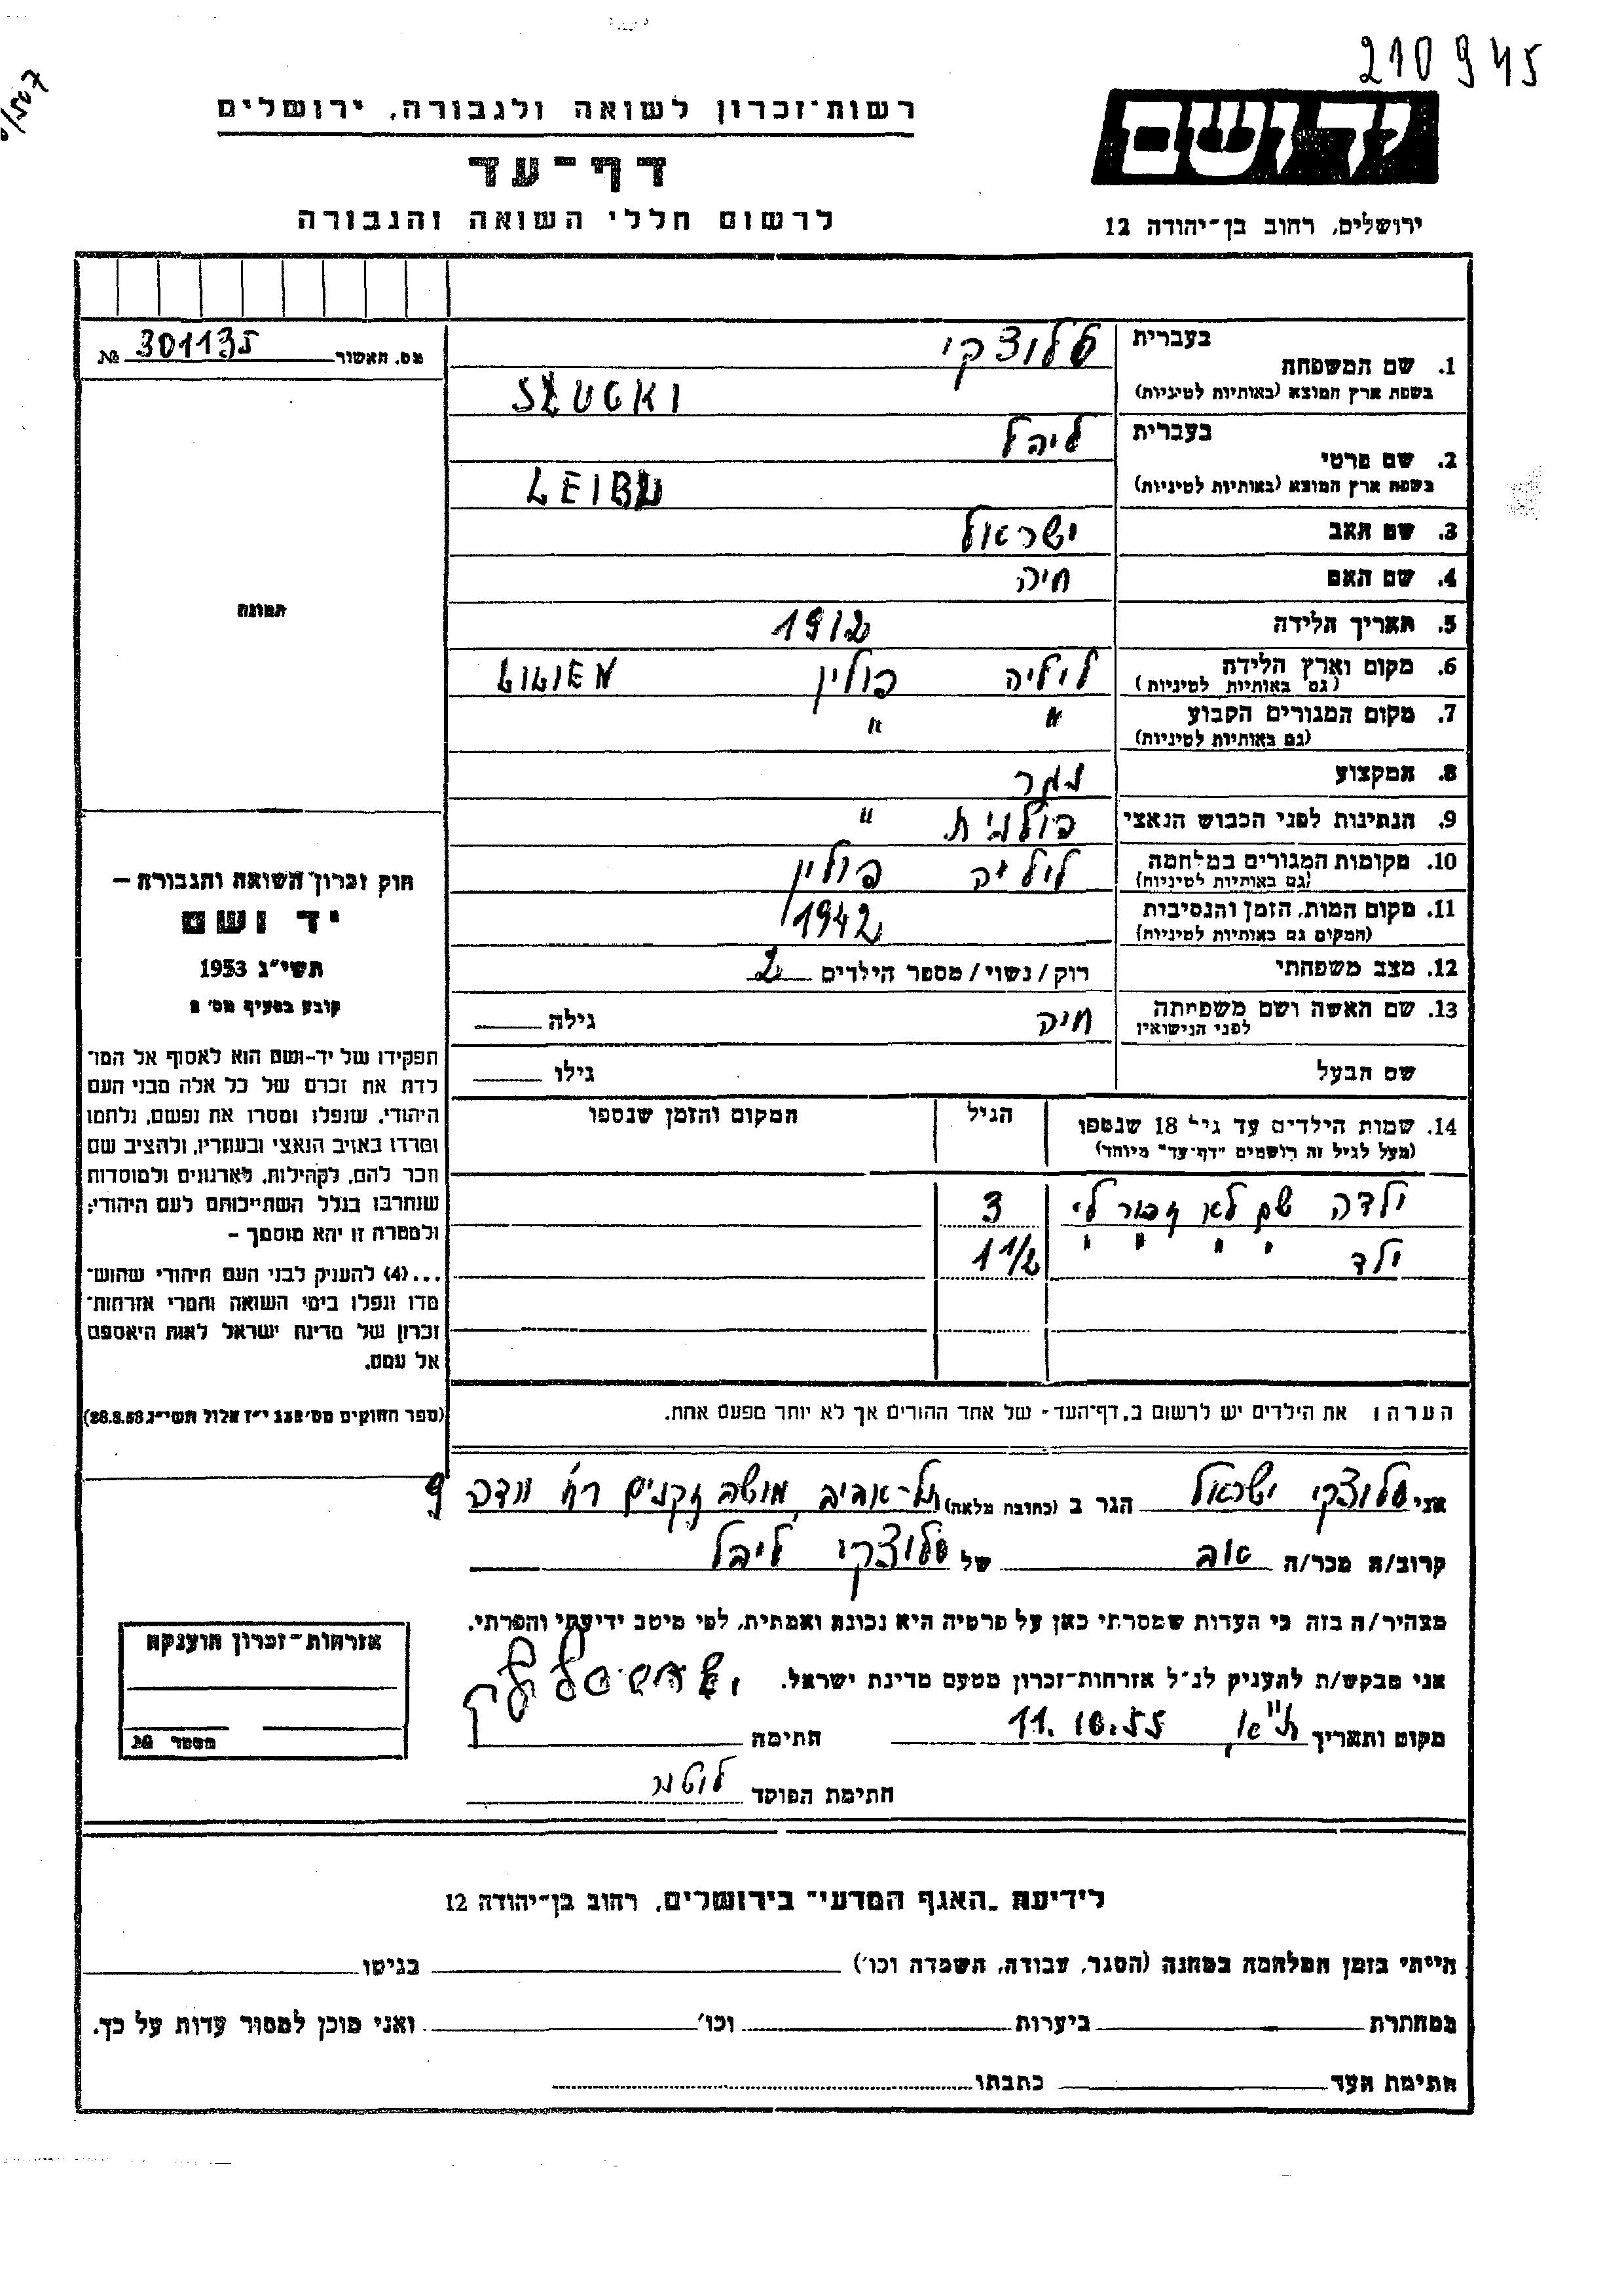 210945
רשות־זכרון לשואה ולגבורה, ירושלים
דף־עד
לרשום חללי השואה והגבורה
ידושם
ירושלים, רחוב בן־יהודה 12
מס. האשור 301135 №
1. שם המשפחה
בעברית סלוצקי
בשפת ארץ המוצא (באותיות לטיניות) SŁUCKI
2. שם פרטי
בעברית ליבל
בשפת ארץ המוצא (באותיות לטיניות)
3. שם האב ישראל
4. שם האם חיה
5. תאריך הלידה 1912
6. מקום וארץ הלידה פולין
(גם באותיות לטיניות)
7. מקום המגורים הקבוע " "
(גם באותיות לטיניות)
8. המקצוע נגר
9. הנתינות לפני הכבוש הנאצי פולנית "
10. מקומות המגורים במלחמה פולין
(גם באותיות לטיניות)
11. מקום המות, הזמן והנסיבות 1942
(המקום גם באותיות לטיניות)
12. מצב משפחתי רוק/נשוי/מספר הילדים 2
13. שם האשה ושם משפחתה חיה גילה
לפני הנישואין
שם הבעל גילו
14. שמות הילדים עד גיל 18 שנספו הגיל המקום והזמן שנספו
(מעל לגיל זה רושמים "דף־עד" מיוחד)
ילדה שם לא זכור לי 3
ילד " " " " 1 1/2
הערה: את הילדים יש לרשום ב„דף־העד״ של אחד ההורים אך לא יותר מפעם אחת.
תמונה
חוק זכרון השואה והגבורה –
יד ושם
תשי״ג 1953
קובע בסעיף מס׳ 2
תפקידו של יד־ושם הוא לאסוף אל המו־
לדת את זכרם של כל אלה מבני העם
היהודי, שנפלו ומסרו את נפשם, נלחמו
ומרדו באויב הנאצי ובעוזריו, ולהציב שם
וזכר להם, לקהילות, לארגונים ולמוסדות
שנחרבו בגלל השתייכותם לעם היהודי;
ולמטרה זו יהא מוסמך –
...(4) להעניק לבני העם היהודי שהוש־
מדו ונפלו בימי השואה והמרי אזרחות־
זכרון של מדינת ישראל לאות היאספם
אל עמם.
(ספר החוקים מס׳ 132 י״ז אלול תשי״ג 28.8.53)
אני סלוצקי ישראל הגר ב (כתובת מלאה) תל־אביב, מושב זקנים רח׳
קרוב/ה מכר/ה אב של סלוצקי ליבל
מצהיר/ה בזה כי העדות שמסרתי כאן על פרטיה היא נכונה ואמתית, לפי מיטב ידיעתי והכרתי.
אני מבקש/ת להעניק לנ״ל אזרחות־זכרון מטעם מדינת ישראל.
מקום ותאריך ת״א, 11.10.55 חתימה
חתימת הפוקד
אזרחות־זכרון הוענקה
מספר №
לידיעת „האגף המדעי״ בירושלים, רחוב בן־יהודה 12
הייתי בזמן המלחמה במחנה (הסגר, עבודה, השמדה וכו׳) בגיטו
במחתרת ביערות וכו׳ ואני מוכן למסור עדות על כך.
חתימת העד כתבתו